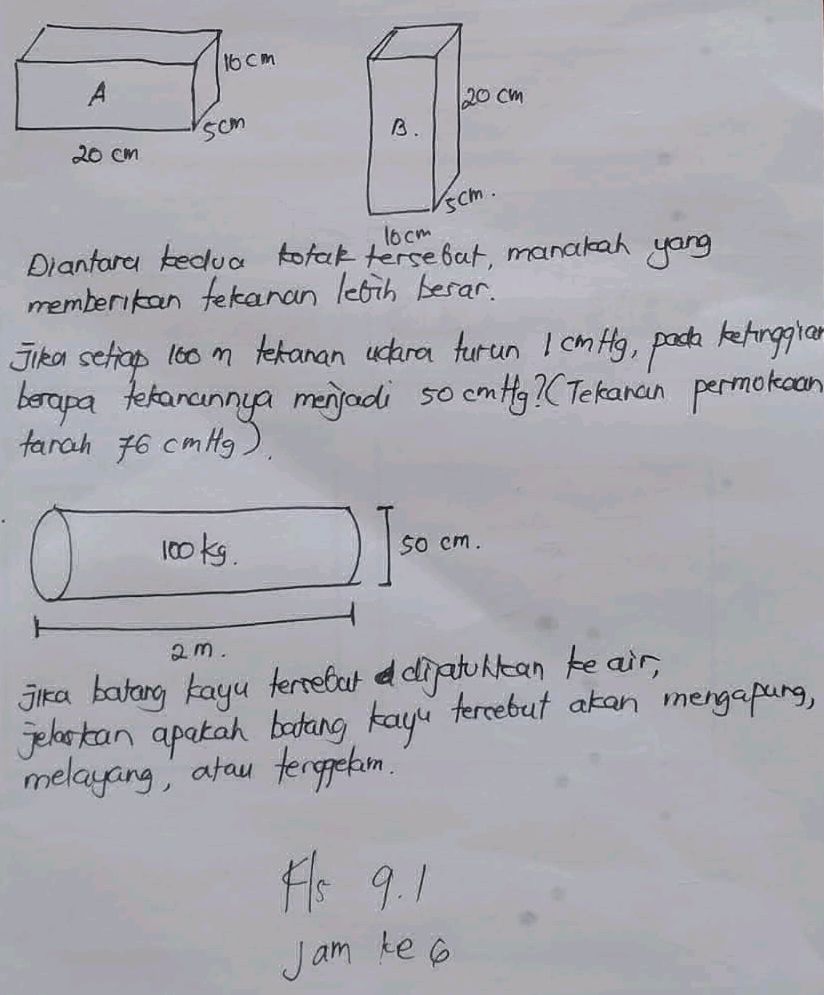 A
10 cm
5cm
20 cm
B.
20 cm
5cm.
10cm
Diantara kedua kotak tersebut, manakah yang
memberikan tekanan lebih besar.
Jika setiap 100 m tekanan udara turun 1 cmHg, pada ketinggian
berapa tekanannya menjadi 50 cmHg? (Tekanan permukaan
tanah 76 cmHg).
100 kg.
50 cm.
2 m.
Jika batang kayu tersebut dijatuhkan ke air,
jelaskan apakah batang kayu tersebut akan mengapung,
melayang, atau tenggelam.
Kls 9.1
Jam ke 6